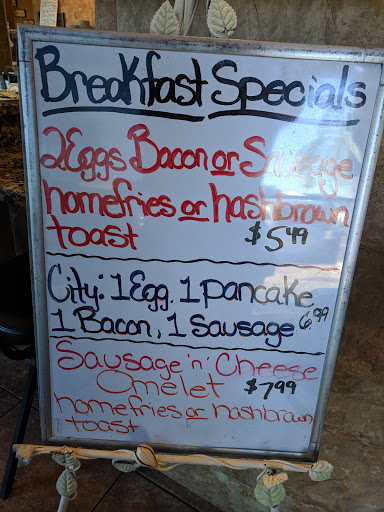 Breakfast Specials
2 Eggs Bacon or Sausage
homefries or hashbrown
toast $5.49
City: 1 Egg, 1 pancake
1 Bacon, 1 sausage 6.99
Sausage 'n' Cheese
Omelet $7.99
homefries or hashbrown
toast